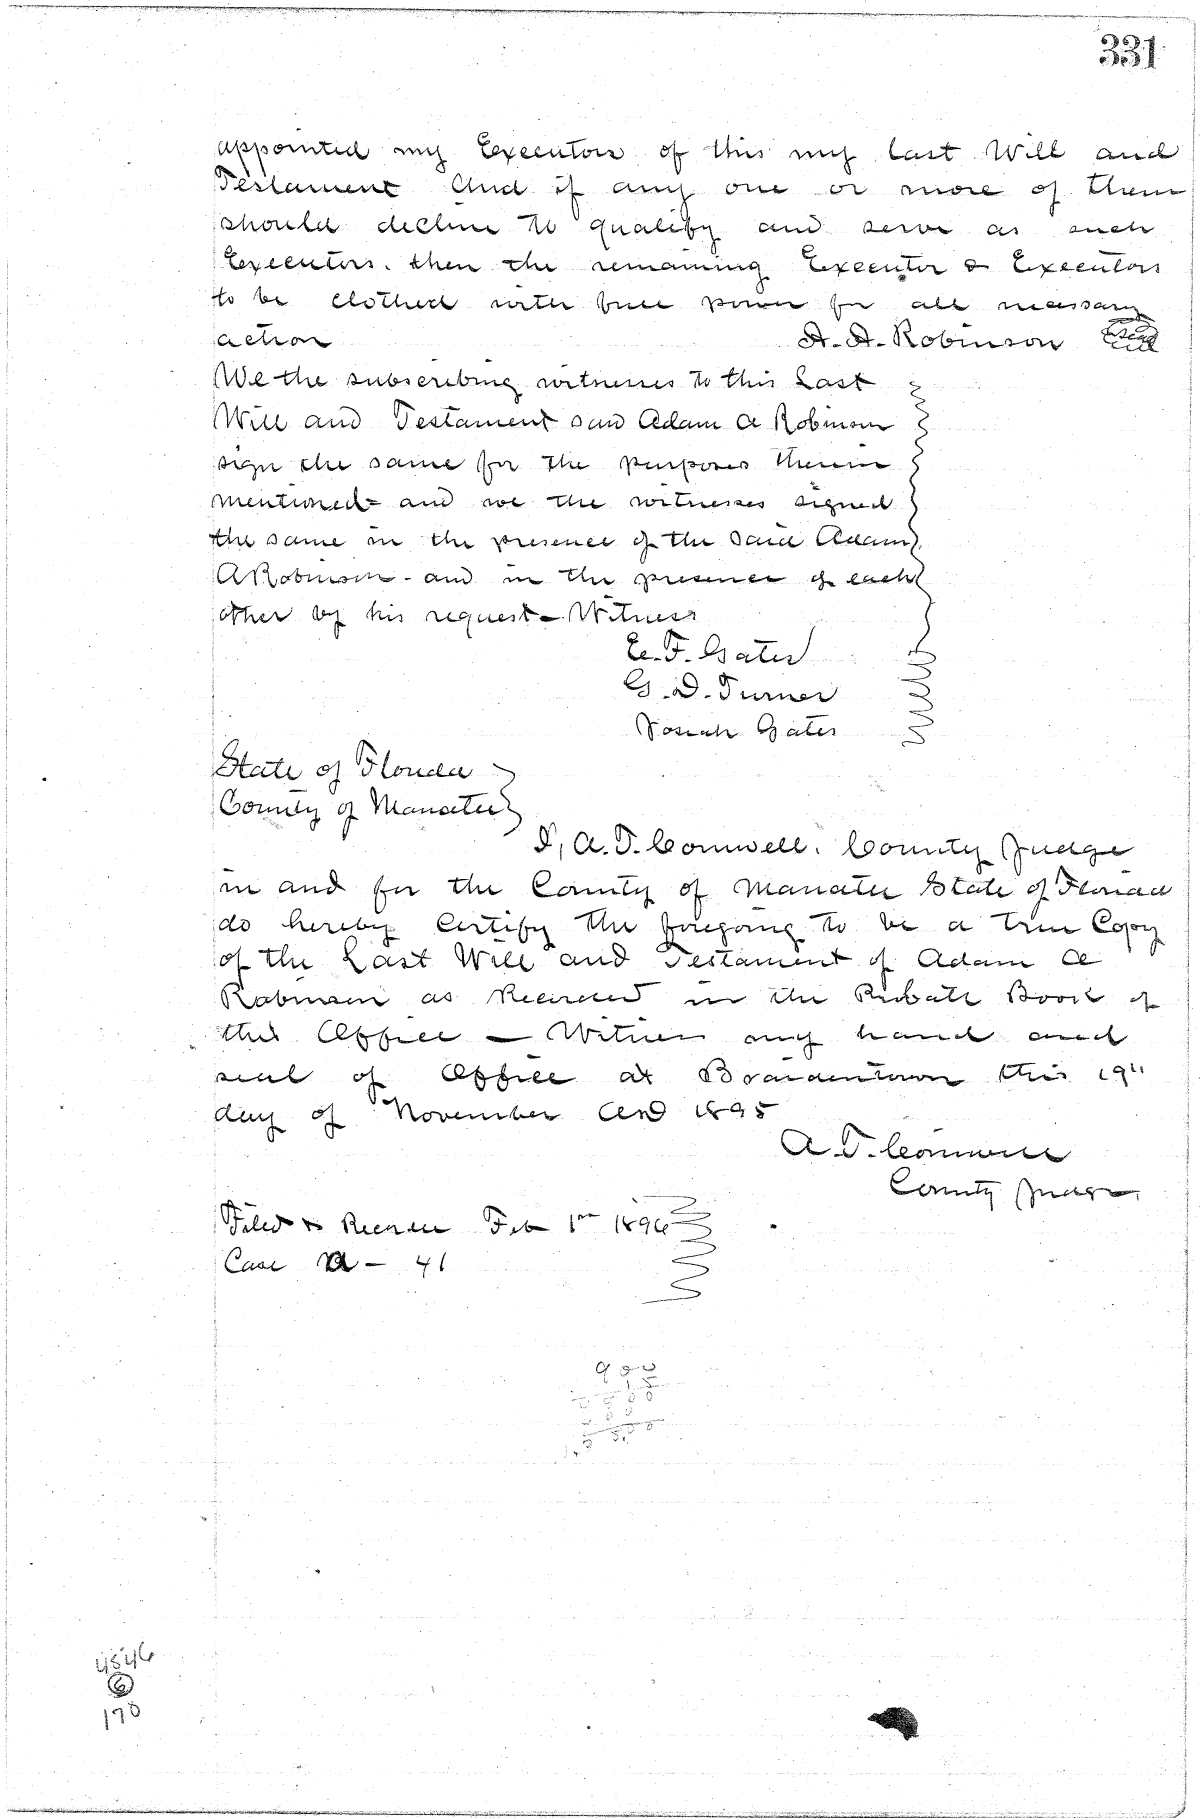 331
appointed my Executors of this my last Will and
Testament And if any one or more of them
should decline to qualify and serve as such
Executors. then the remaining Executor & Executors
to be clothed with full power for all necessary
action A. A. Robinson Seal
We the subscribing witnesses to this Last
Will and Testament saw Adam A Robinson
sign the same for the purposes therein
mentioned - and we the witnesses signed
the same in the presence of the said Adam
A Robinson - and in the presence of each
other by his request - Witness
E. F. Gates
G. D. Turner
Josiah Gates
State of Florida
County of Manatee
I, A. T. Cornwell. County Judge
in and for the County of Manatee State of Florida
do hereby certify the foregoing to be a true Copy
of the Last Will and Testament of Adam A
Robinson as Recorded in the Probate Book of
this Office - Witness my hand and
seal of Office at Braidentown this 19"
day of November AD 1895
A. T. Cornwell
County Judge
Filed & Recorded Feb 1st 1896
Case - 41
900
15
4546
6
170